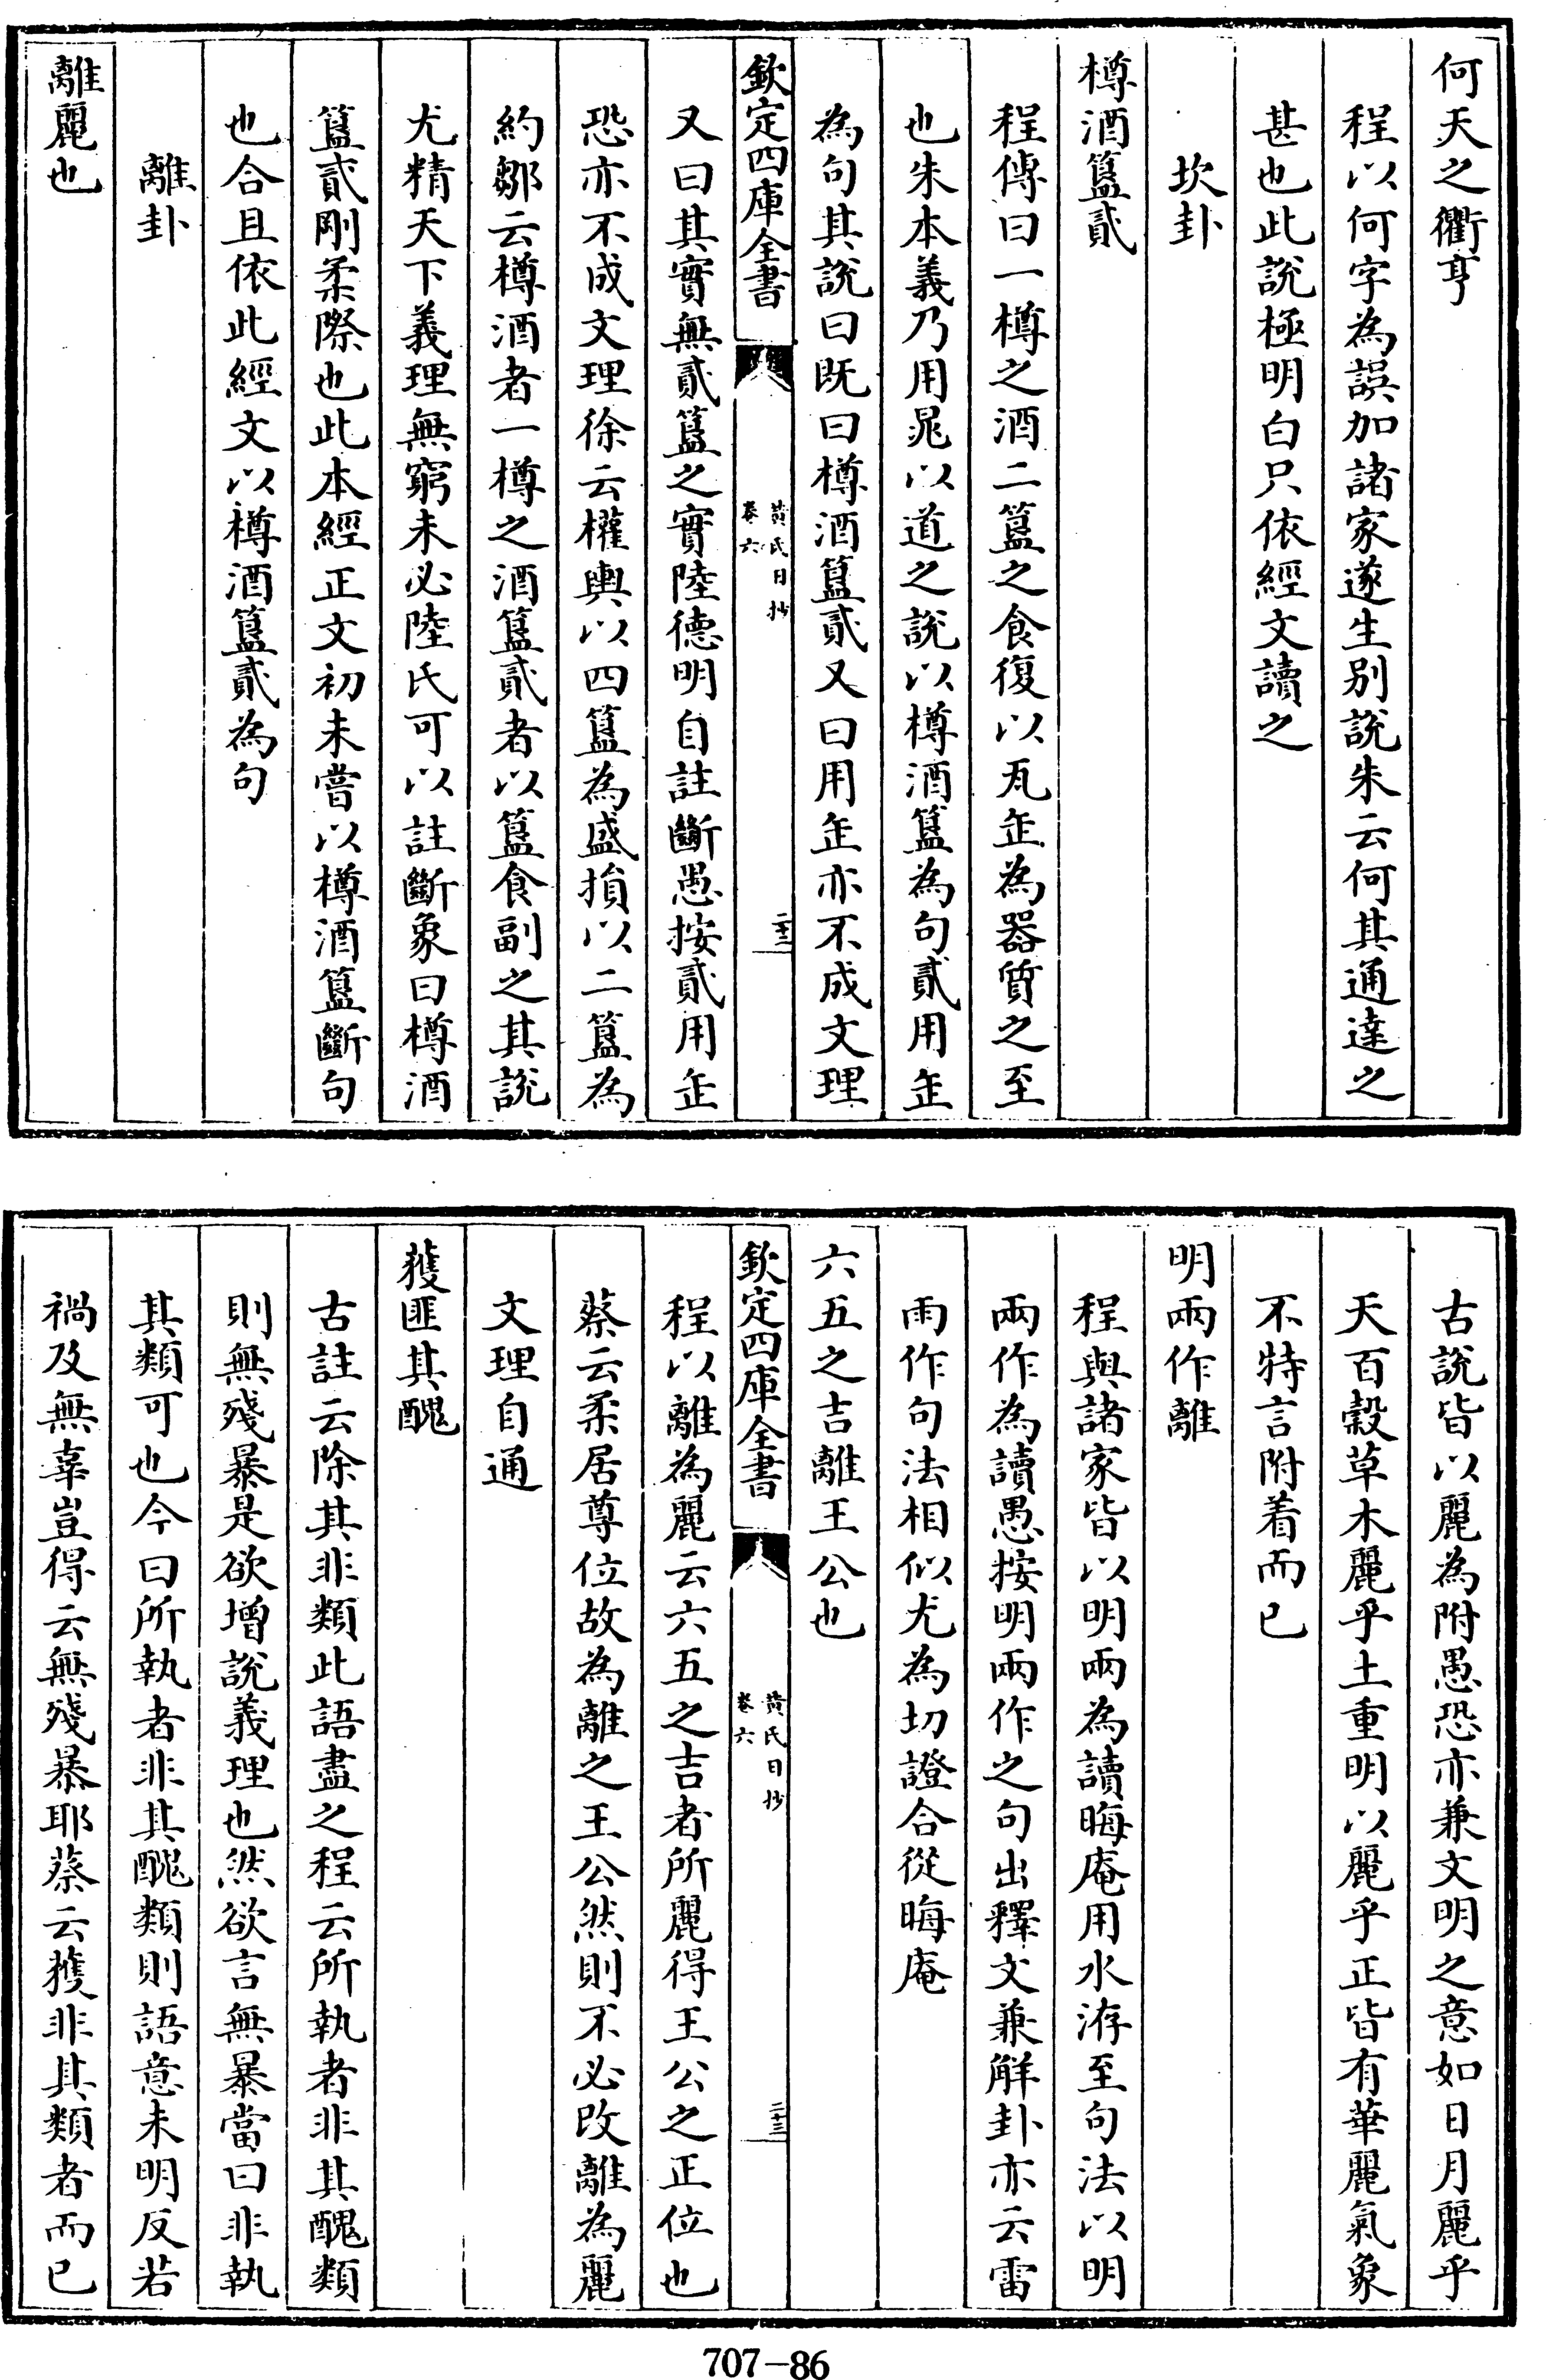 何天之衢亨
程以何字為誤加諸家遂生别說朱云何其通達之
甚也此說極明白只依經文讀之
坎卦
樽酒簋貳
程傳曰一樽之酒二簋之食復以瓦缶為器質之至
也朱本義乃用晁以道之說以樽酒簋為句貳用缶
為句其說曰既曰樽酒簋貳又曰用缶亦不成文理
欽定四庫全書
黄氏日抄
卷六
二十三
又曰其實無貳簋之實陸德明自註斷愚按貳用缶
恐亦不成文理徐云權輿以四簋為盛損以二簋為
約鄒云樽酒者一樽之酒簋貳者以簋食副之其說
尤精天下義理無窮未必陸氏可以註斷象曰樽酒
簋貳剛柔際也此本經正文初未嘗以樽酒簋斷句
也合且依此經文以樽酒簋貳為句
離卦
離麗也
古說皆以麗為附愚恐亦兼文明之意如日月麗乎
天百穀草木麗乎土重明以麗乎正皆有華麗氣象
不特言附着而已
明兩作離
程與諸家皆以明兩為讀晦庵用水洊至句法以明
兩作為讀愚按明兩作之句出釋文兼解卦亦云雷
雨作句法相似尤為切證合從晦庵
六五之吉離王公也
欽定四庫全書
黄氏日抄
卷六
二十三
程以離為麗云六五之吉者所麗得王公之正位也
蔡云柔居尊位故為離之王公然則不必改離為麗
文理自通
獲匪其醜
古註云除其非類此語盡之程云所執者非其醜類
則無殘暴是欲增說義理也然欲言無暴當曰非執
其類可也今曰所執者非其醜類則語意未明反若
禍及無辜豈得云無殘暴耶蔡云獲非其類者而已
707-86